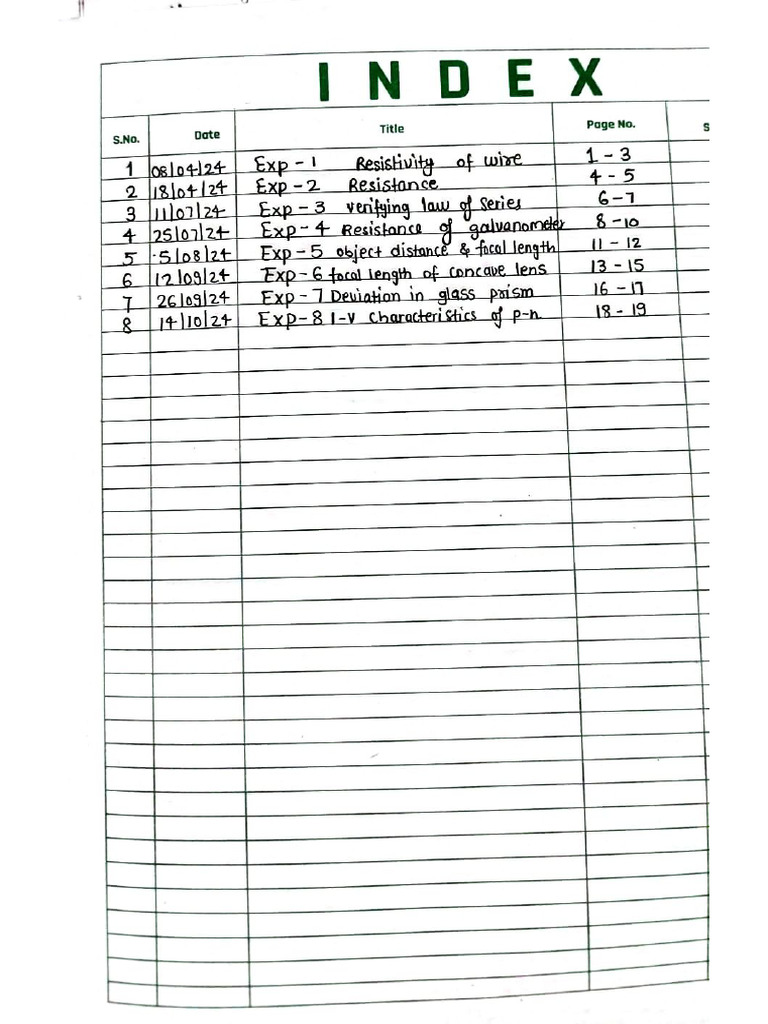 INDEX
S.No. Date Title Page No. S
1 08/04/24 Exp - 1 Resistivity of wire 1 - 3
2 18/04/24 Exp - 2 Resistance 4 - 5
3 11/07/24 Exp - 3 Verifying law of series 6 - 7
4 25/07/24 Exp - 4 Resistance of galvanometer 8 - 10
5 5/08/24 Exp - 5 object distance & focal length 11 - 12
6 12/09/24 Exp - 6 focal length of concave lens 13 - 15
7 26/09/24 Exp - 7 Deviation in glass prism 16 - 17
8 14/10/24 Exp - 8 I-V characteristics of p-n 18 - 19